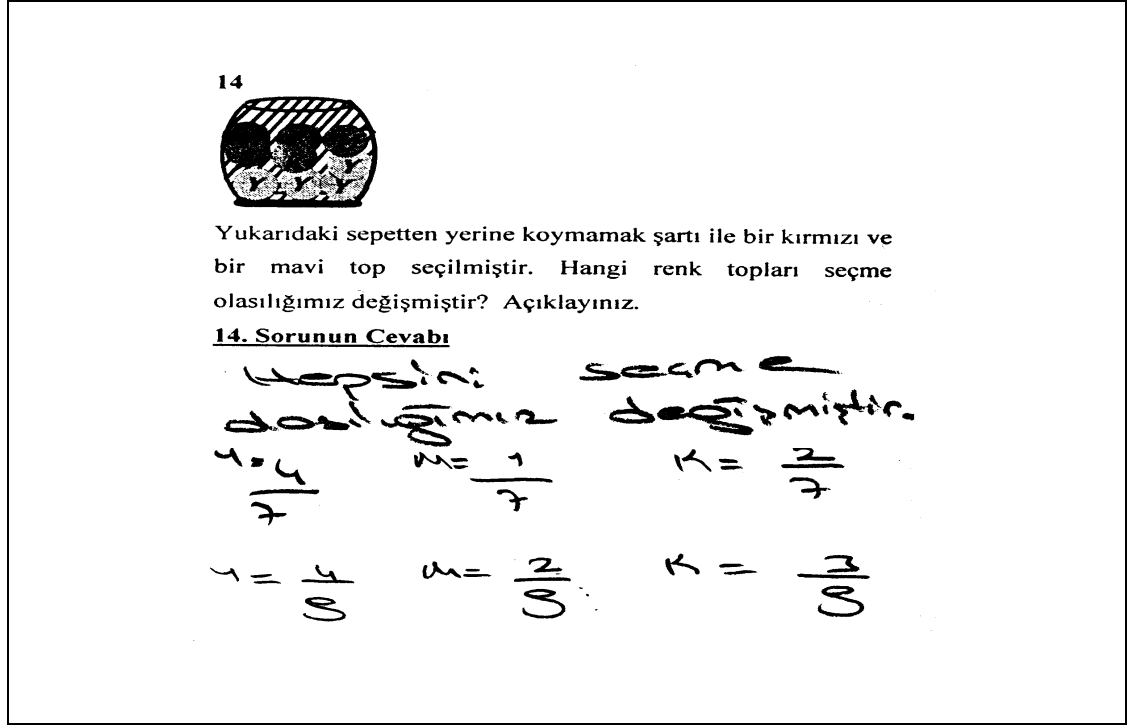 14
Y Y Y Y
Yukarıdaki sepetten yerine koymamak şartı ile bir kırmızı ve
bir mavi top seçilmiştir. Hangi renk topları seçme
olasılığımız değişmiştir? Açıklayınız.
14. Sorunun Cevabı
Hepsini seçme
olasılığımız değişmiştir.
Y = 4/7 M = 1/7 K = 2/7
Y = 4/9 M = 2/9 K = 3/9